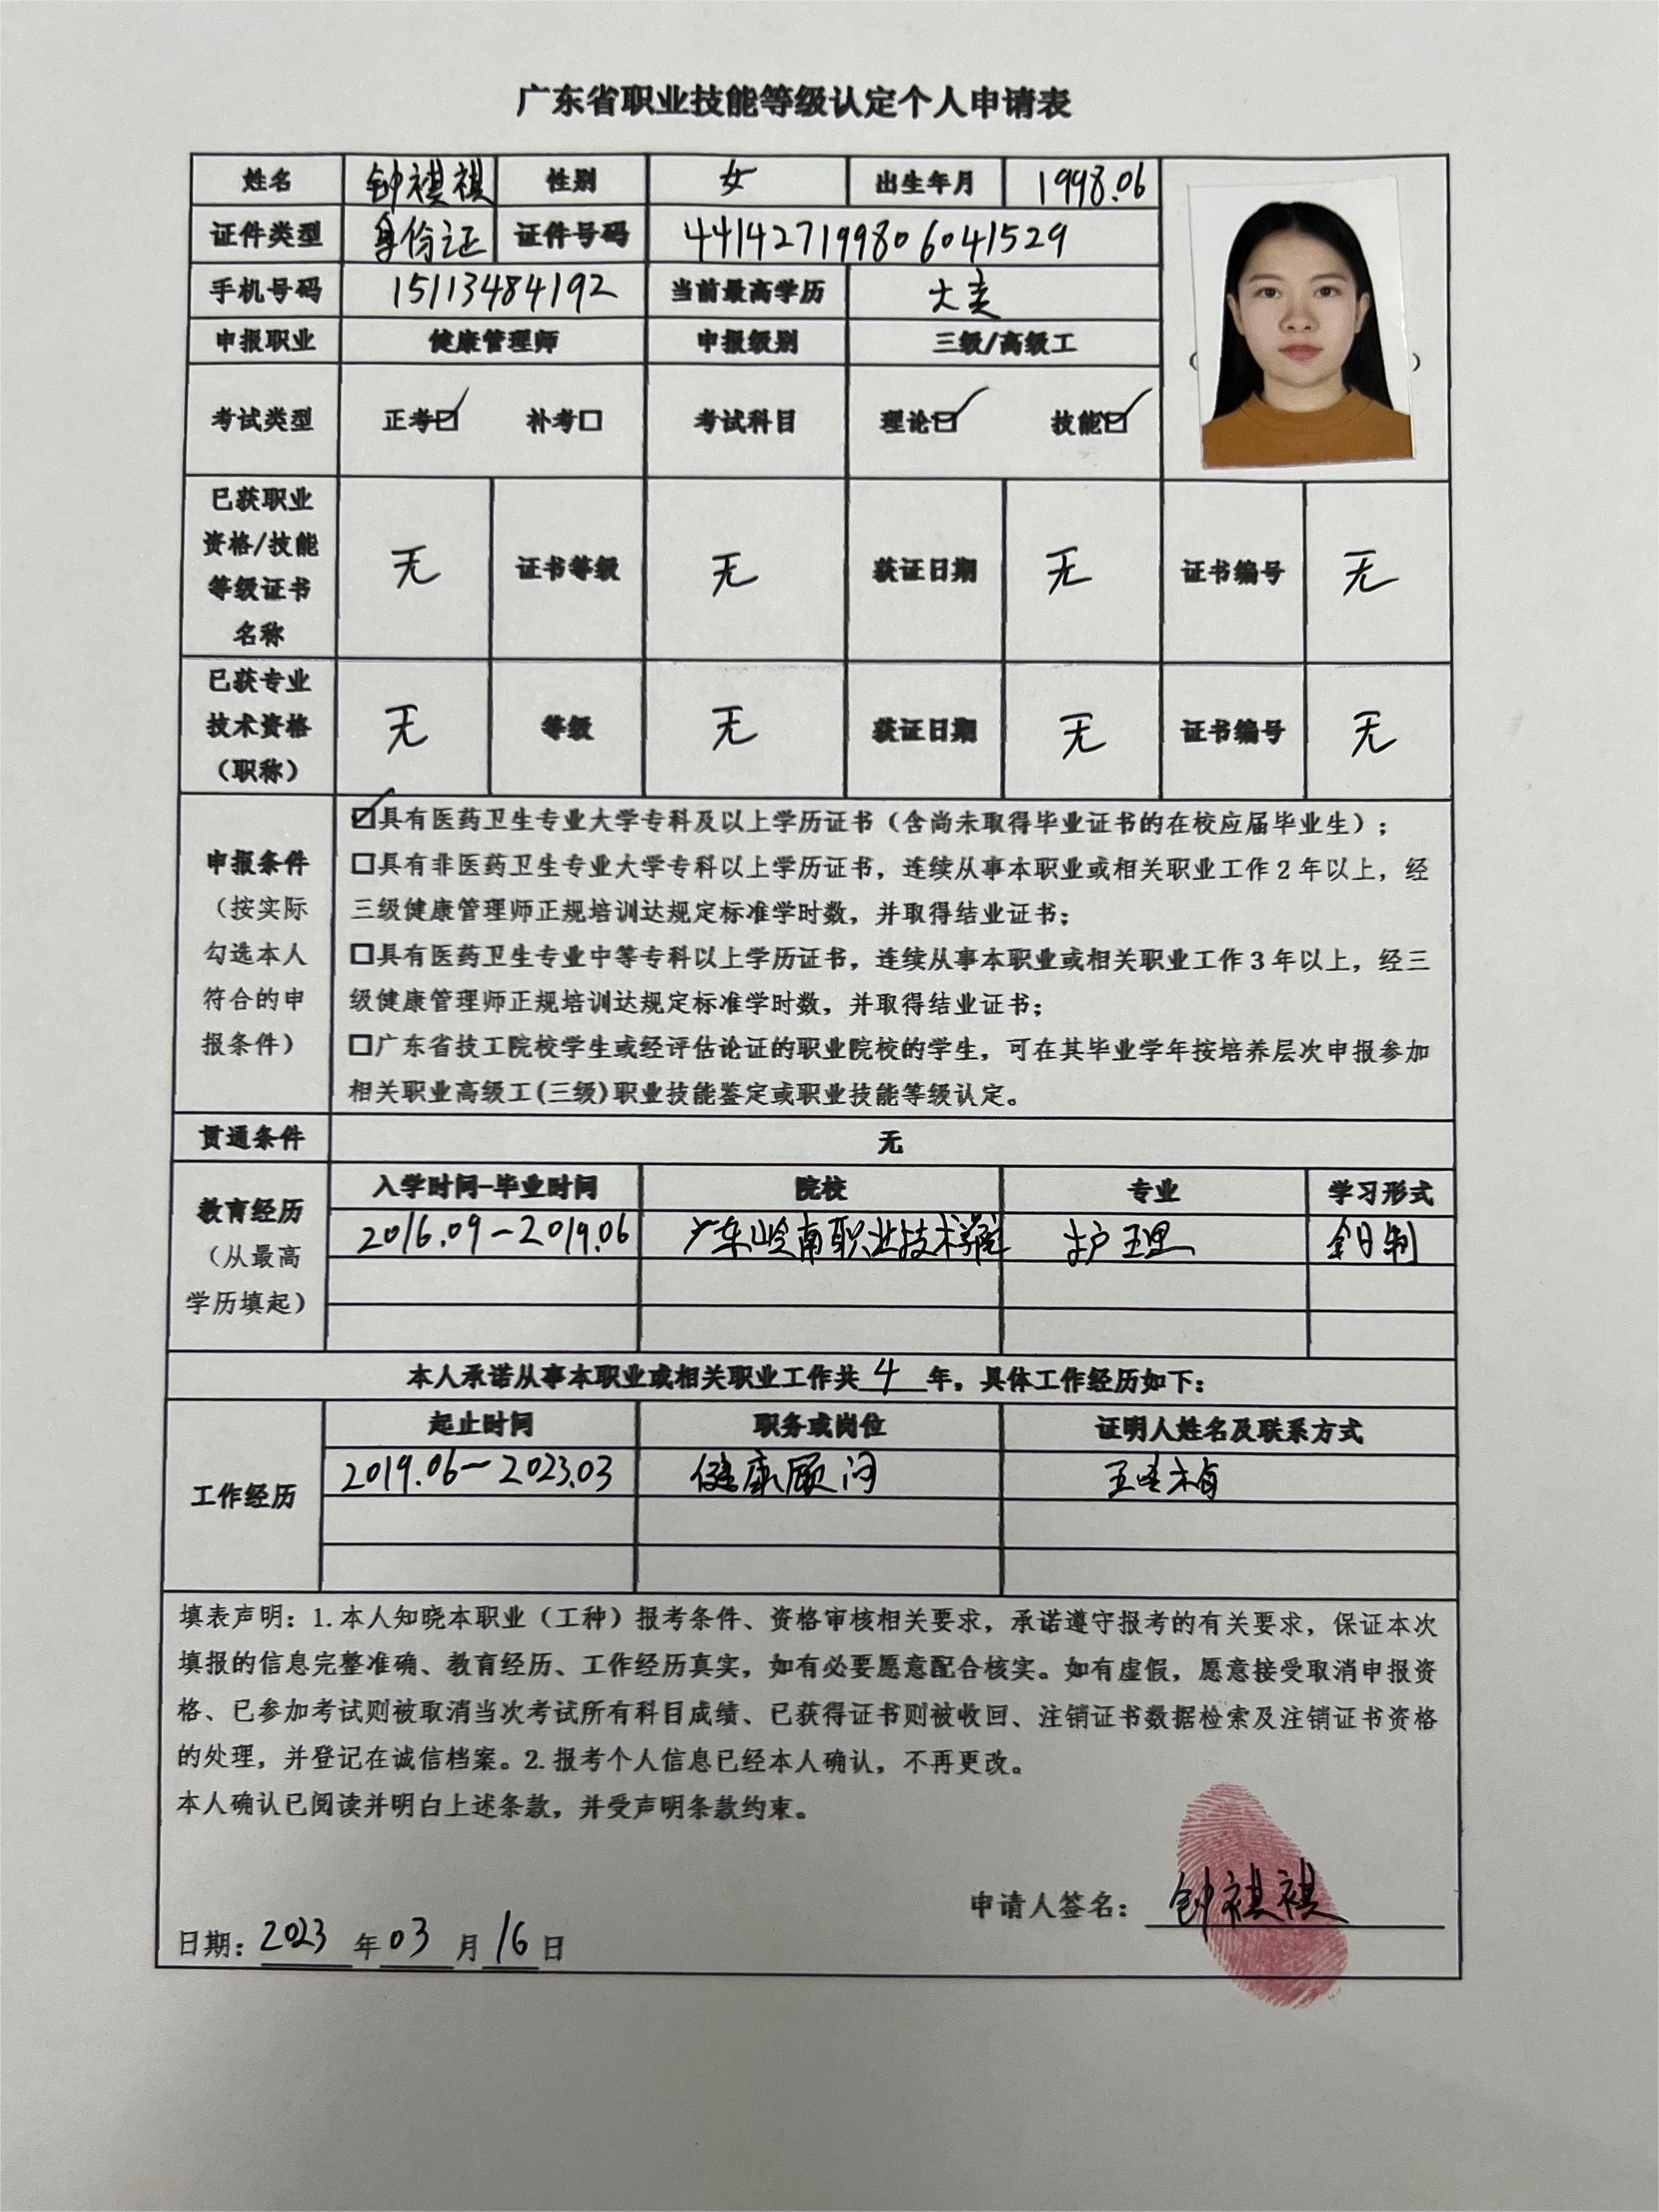 广东省职业技能等级认定个人申请表
姓名 钟祺祺 性别 女 出生年月 1998.06
证件类型 身份证 证件号码 441427199806041529
手机号码 15113484192 当前最高学历 大专
申报职业 健康管理师 申报级别 三级/高级工
考试类型 正考☑ 补考□ 考试科目 理论☑ 技能☑
已获职业
资格/技能
等级证书
名称
无 证书等级 无 获证日期 无 证书编号 无
已获专业
技术资格
（职称）
无 等级 无 获证日期 无 证书编号 无
申报条件
（按实际
勾选本人
符合的申
报条件）
☑具有医药卫生专业大学专科及以上学历证书（含尚未取得毕业证书的在校应届毕业生）；
□具有非医药卫生专业大学专科以上学历证书，连续从事本职业或相关职业工作2年以上，经
三级健康管理师正规培训达规定标准学时数，并取得结业证书；
□具有医药卫生专业中等专科以上学历证书，连续从事本职业或相关职业工作3年以上，经三
级健康管理师正规培训达规定标准学时数，并取得结业证书；
□广东省技工院校学生或经评估论证的职业院校的学生，可在其毕业学年按培养层次申报参加
相关职业高级工(三级)职业技能鉴定或职业技能等级认定。
贯通条件 无
教育经历
（从最高
学历填起）
入学时间-毕业时间 院校 专业 学习形式
2016.09-2019.06 广东岭南职业技术学院 护理 全日制
本人承诺从事本职业或相关职业工作共 4 年，具体工作经历如下：
工作经历
起止时间 职务或岗位 证明人姓名及联系方式
2019.06-2023.03 健康顾问
填表声明：1.本人知晓本职业（工种）报考条件、资格审核相关要求，承诺遵守报考的有关要求，保证本次
填报的信息完整准确、教育经历、工作经历真实，如有必要愿意配合核实。如有虚假，愿意接受取消申报资
格、已参加考试则被取消当次考试所有科目成绩、已获得证书则被收回、注销证书数据检索及注销证书资格
的处理，并登记在诚信档案。2.报考个人信息已经本人确认，不再更改。
本人确认已阅读并明白上述条款，并受声明条款约束。
申请人签名：钟祺祺
日期：2023 年 03 月 16 日